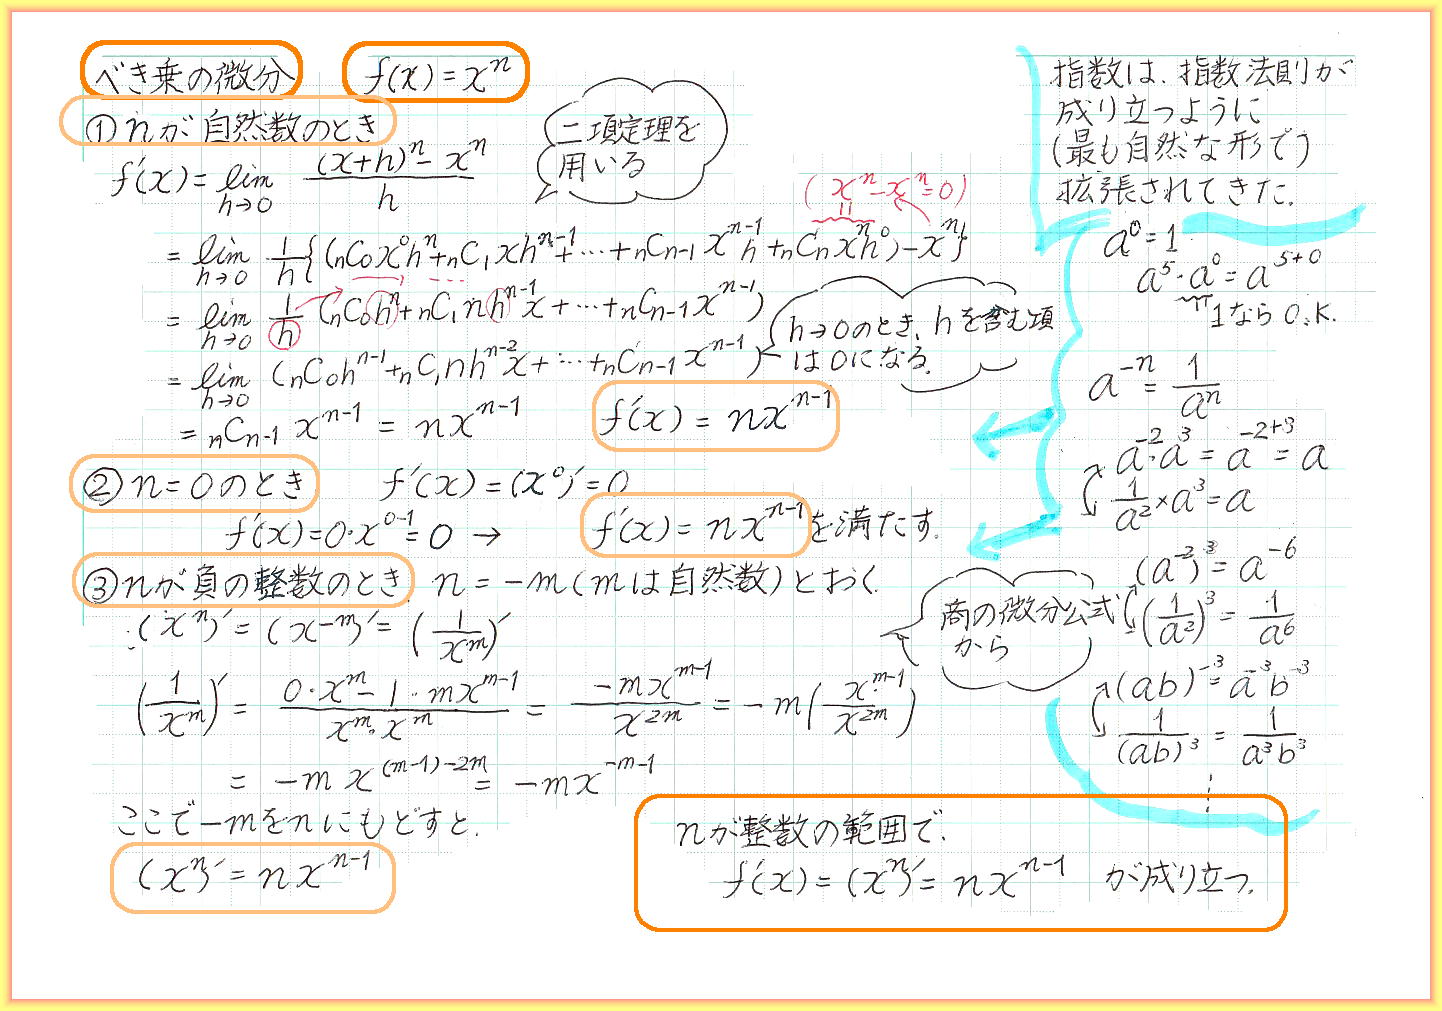 べき乗の微分 f(x)=xⁿ
①nが自然数のとき
二項定理を
用いる
f'(x)=lim_{h→0} ((x+h)ⁿ-xⁿ)/h
(xⁿ-xⁿ=0)
=lim_{h→0} 1/h{(nC₀x⁰hⁿ+nC₁xhⁿ⁻¹+…+nCn-1 xⁿ⁻¹h+nCnxⁿh⁰)-xⁿ}
=lim_{h→0} 1/h (nC₀hⁿ+nC₁nhⁿ⁻¹x+…+nCn-1xⁿ⁻¹)
h→0のとき、hを含む項
は0になる.
=lim_{h→0} (nC₀hⁿ⁻¹+nC₁nhⁿ⁻²x+…+nCn-1xⁿ⁻¹)
=nCn-1 xⁿ⁻¹=nxⁿ⁻¹ f'(x)=nxⁿ⁻¹
②n=0のとき f'(x)=(x⁰)'=0
f'(x)=0・x⁰⁻¹=0 → f'(x)=nxⁿ⁻¹を満たす.
③nが負の整数のとき n=-m(mは自然数)とおく.
∴(xⁿ)'=(x⁻ᵐ)'=(1/xᵐ)'
商の微分公式
から
(1/xᵐ)'=(0・xᵐ-1・mxᵐ⁻¹)/(xᵐ・xᵐ)=(-mxᵐ⁻¹)/x²ᵐ=-m(xᵐ⁻¹/x²ᵐ)
=-mx^{(m-1)-2m}=-mx⁻ᵐ⁻¹
ここで-mをnにもどすと.
(xⁿ)'=nxⁿ⁻¹
nが整数の範囲で.
f'(x)=(xⁿ)'=nxⁿ⁻¹ が成り立つ.
指数は、指数法則が
成り立つように
(最も自然な形で)
拡張されてきた.
a⁰=1
a⁵・a⁰=a⁵⁺⁰
1なら O.K.
a⁻ⁿ=1/aⁿ
a⁻²・a³=a⁻²⁺³=a
1/a²×a³=a
(a⁻²)³=a⁻⁶
(1/a²)³=1/a⁶
(ab)⁻³=a⁻³b⁻³
1/(ab)³=1/a³b³